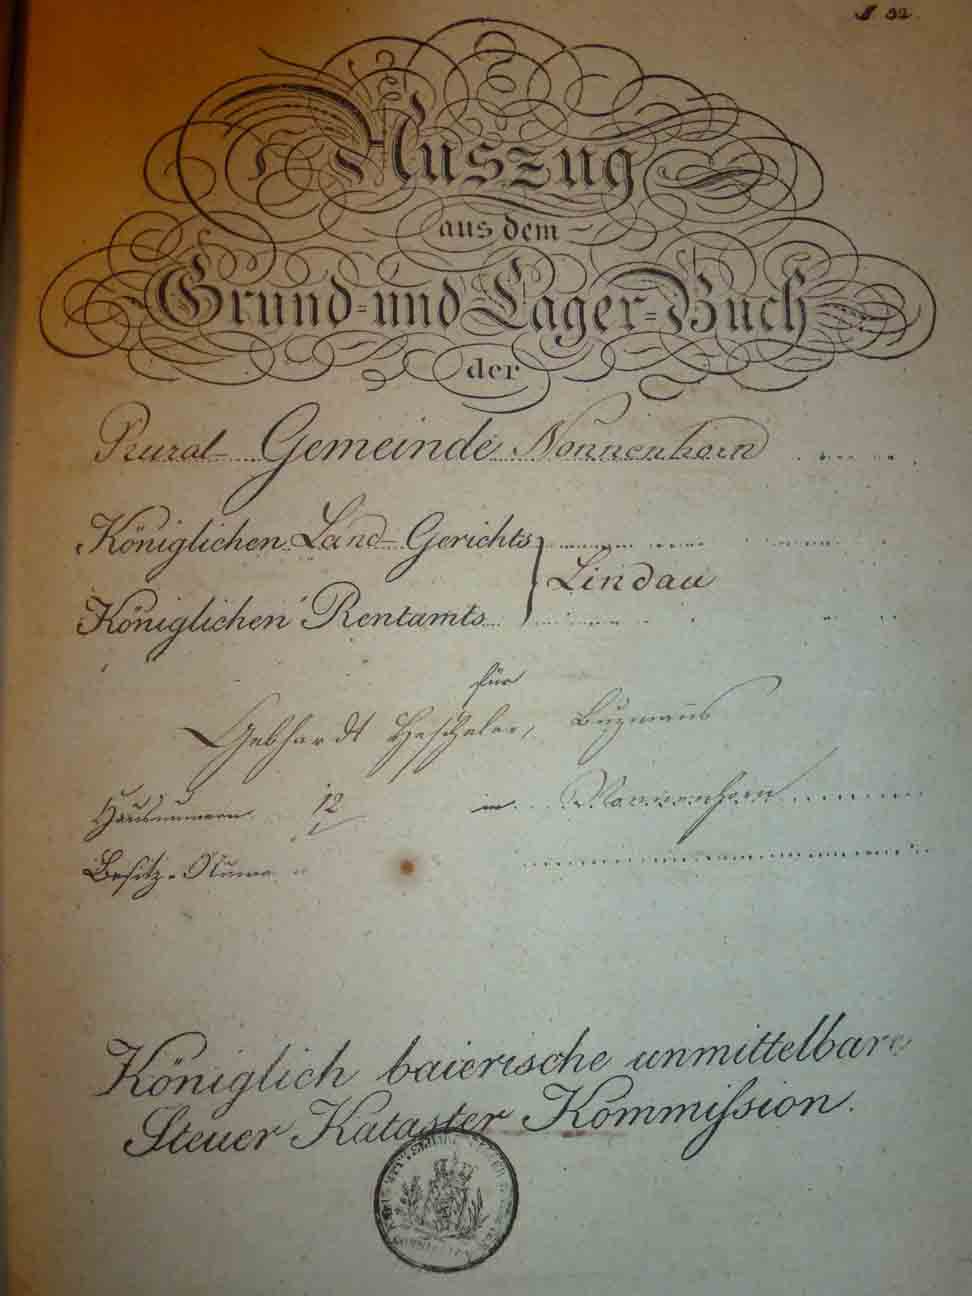 Auszug
aus dem
Grund- und Lager-Buch
der
Rural- Gemeinde Nonnenhorn
Königlichen Land- Gerichts
Lindau
Königlichen Rentamts
für
Gebhardt
Hausnummern 12 in Nonnenhorn
Besitz-
Königlich baierische unmittelbare
Steuer Kataster Kommiſsion.